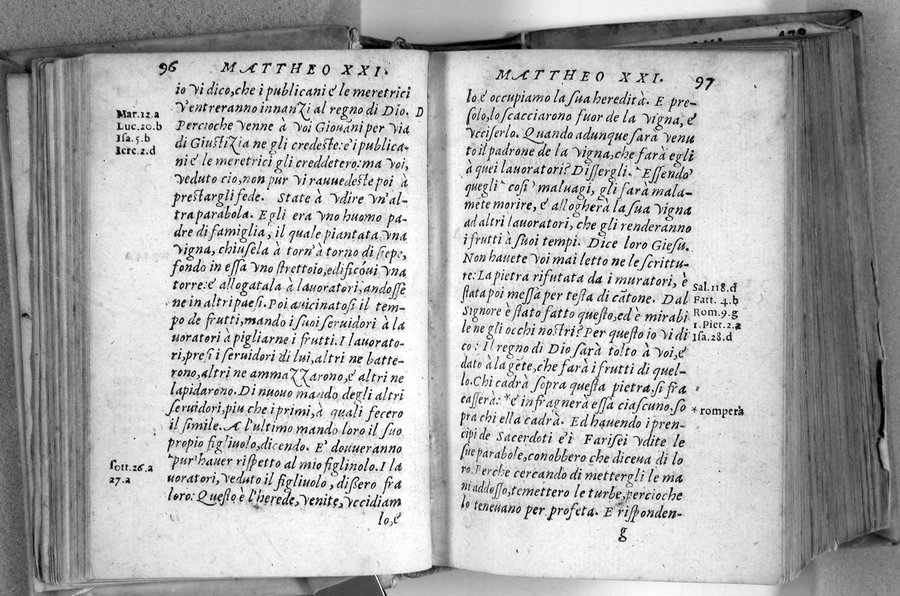 96 MATTHEO XXI.
io vi dico, che i publicani e le meretrici
v'entreranno innanzi al regno di Dio. D
Mar.12.a
Luc.20.b
Isa.5.b
Iere.2.d
Percioche venne à voi Giouani per via
di Giustizia ne gli credeste: e i publica-
ni e le meretrici gli creddetero: ma voi,
veduto cio, non pur vi rauuedeste poi à
prestargli fede. State à vdire vn'al-
tra parabola. Egli era vno huomo pa-
dre di famiglia, il quale piantata vna
vigna, chiusela à torn'à torno di siepe,
fondo in essa vno strettoio, edificóui vna
torre: e allogatala à lauoratori, andosse
ne in altri paesi. Poi auicinatosi il tem-
po de frutti, mando i suoi seruidori à la
uoratori à pigliarne i frutti. I lauorato-
ri, presi i seruidori di lui, altri ne batte-
rono, altri ne ammazzarono, e altri ne
lapidarono. Di nuouo mando degli altri
seruidori, piu che i primi, à quali fecero
il simile. A l'ultimo mando loro il suo
propio figliuolo, dicendo. E' douueranno
Sott.26.a
27.a
pur'hauer rispetto al mio figlinolo. I la
uoratori, veduto il figliuolo, dissero fra
loro: Questo è l'herede, venite, vccidiam
lo, e
MATTHEO XXI. 97
lo e occupiamo la sua heredità. E pre-
solo, lo scacciarono fuor de la vigna, e
vcciserlo. Quando adunque sarà venu
to il padrone de la vigna, che farà egli
à quei lauoratori? Dissergli. Essendo
quegli cosi maluagi, gli farà mala-
mẽte morire, e allogherà la sua vigna
ad altri lauoratori, che gli renderanno
i frutti à suoi tempi. Dice loro Giesu.
Non hauete voi mai letto ne le scrittu-
re: La pietra rifutata da i muratori, è
stata poi messa per testa di cãtone. Dal
Signore è stato fatto questo, ed è mirabi
le ne gli occhi nostri? Per questo io vi di
co: Il regno di Dio sarà tolto à voi, e
dato à la gẽte, che farà i frutti di quel-
lo. Chi cadrà sopra questa pietra, si fra
casserà: *e infragnerà essa ciascuno, so
pra chi ella cadrà. Ed hauendo i pren-
cipi de Sacerdoti e i Farisei vdite le
sue parabole, conobbero che diceua di lo
ro. Perche cercando di mettergli le ma
ni addosso, temettero le turbe, percioche
lo teneuano per profeta. E risponden-
g
Sal.118.d
Fatt.4.b
Rom.9.g
1.Piet.2.a
Isa.28.d
* romperà